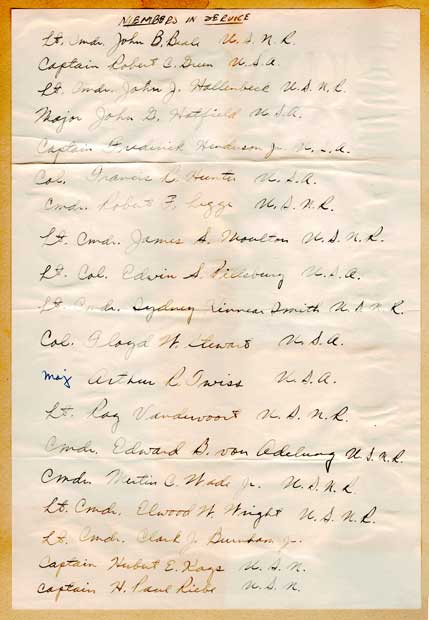 MEMBERS IN SERVICE
Lt. Cmdr. John B. Beale U.S.N.R.
Captain Robert C. Green U.S.A.
Lt. Cmdr. John J. Hallenbeck U.S.N.R.
Major John G. Hatfield U.S.A.
Captain Frederick Henderson Jr. U.S.A.
Col. Francis R. Hunter U.S.A.
Cmdr. Robert F. Legge U.S.N.R.
Lt. Cmdr. James S. Moulton U.S.N.R.
Lt. Col. Edwin S. Pillsbury U.S.A.
Lt. Cmdr. Sydney Kinnear Smith U.S.N.R.
Col. Floyd W. Stewart U.S.A.
Maj Arthur R. Twiss U.S.A.
Lt. Roy Vandervoort U.S.N.R.
Cmdr. Edward B. von Adelung U.S.N.R.
Cmdr. Mertin C. Wade Jr. U.S.N.R.
Lt. Cmdr. Elwood W. Wright U.S.N.R.
Lt. Cmdr. Clark J. Burnham Jr.
Captain Hubert E. U.S.N.
Captain H. Paul Riebe U.S.N.